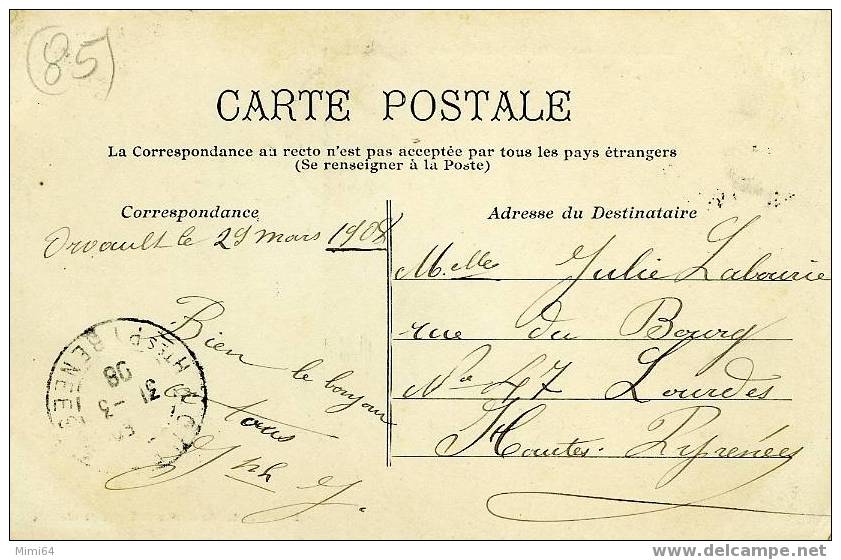 (85)
CARTE POSTALE
La Correspondance au recto n'est pas acceptée par tous les pays étrangers
(Se renseigner à la Poste)
Correspondance
Adresse du Destinataire
Orvault le 29 mars 1908
Bien
le bonjour
a tous
Jph J.
Melle Julie Labourie
rue du Bourg
No 47 Lourdes
Htes Pyrénées
Hautes-Pyrénées
HTES PYRENEES
31 -3
08
Mimi64
www.delcampe.net